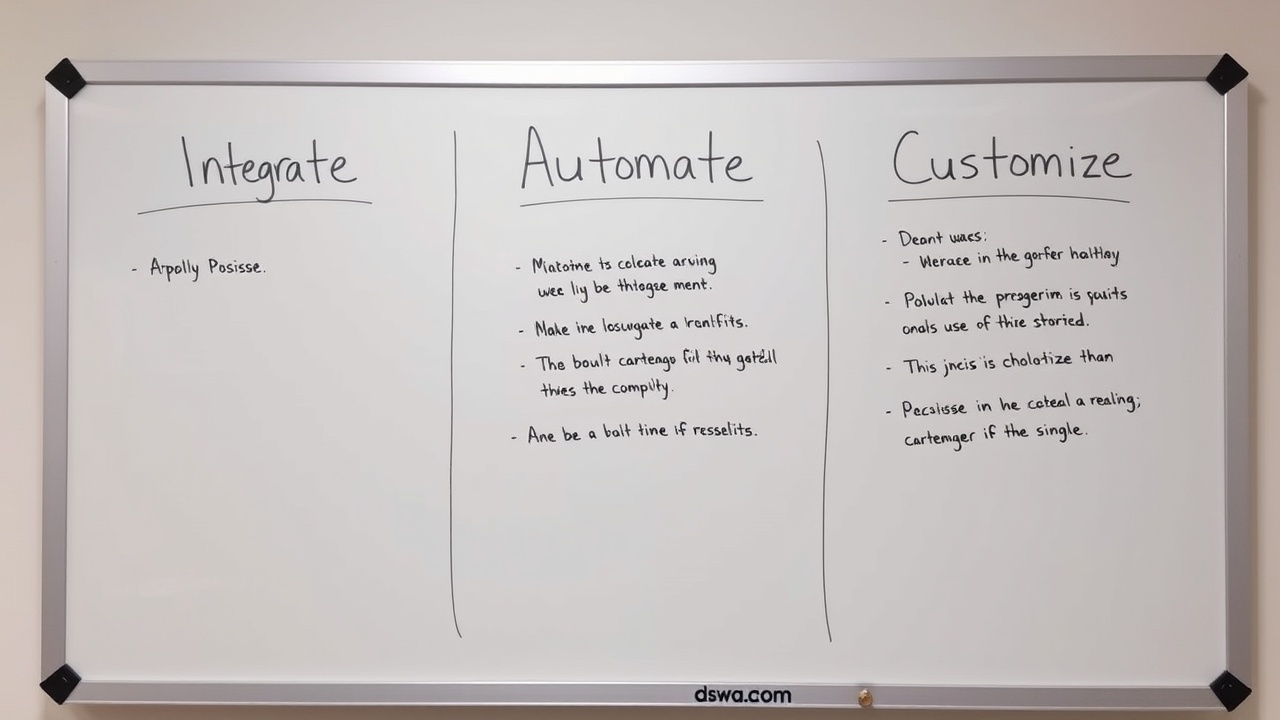 Integrate
- Arpolly Posisse.
Automate
- Miatoine ts coleate arving
wee liy be thtogse ment.
- Make ine losurgate a
- The boult cartengo thy
thies the compilty.
- Ane be a balt tine if resselits.
Customize
- Deant waes:
- Werace in the gorfer
- Polulat the presgerim is
onals use of thire storied.
- This is cholotize than
- Pecslisse in he coteal a realing;
cartemger if the single.
dswa.com